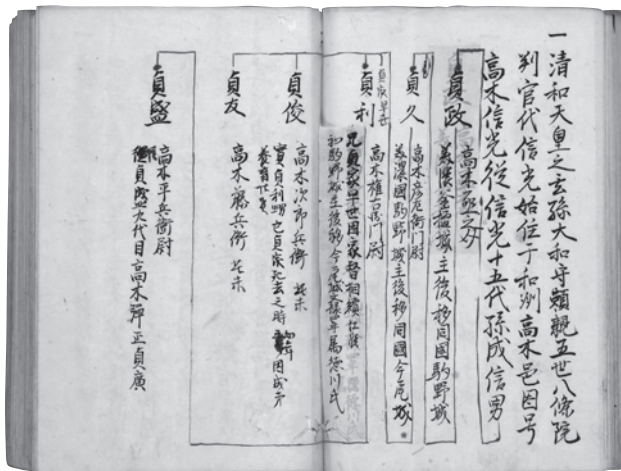 一清和天皇之玄孫大和守頼親五世八條院
判官代信光始住于和州高木邑因号
高木信光従信光十五代孫成信男
貞政
城主後移同國駒野城
貞久
高木彦左衛門尉
美濃國駒野城主後移同國今尾城
貞家早世
貞利
高木権右衛門尉
兄貞家早世因家督相續仕
初駒野城主後移今尾城文禄年属徳川氏
貞俊
高木次郎兵衛
實貞利甥也貞家死去之時幼年因成弟
貞友
高木藤兵衛
貞盛
高木平兵衛尉
從貞盛九代目高木弾正貞廣